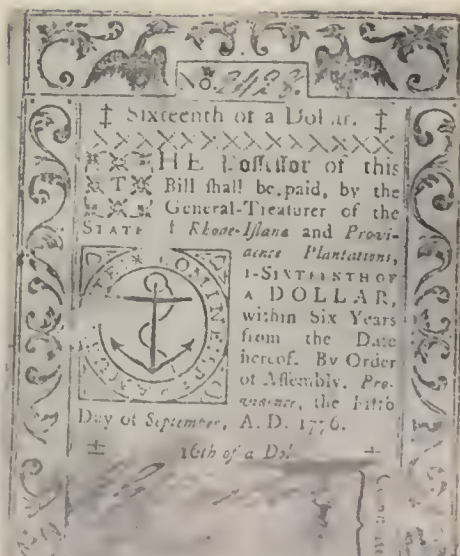 No
‡ Sixteenth of a Dollar. ‡
THE Poſſeſſor of this
Bill ſhall be paid, by the
General-Treaſurer of the
STATE of Rhode-Iſland and Provi-
dence Plantations,
1-SIXTEENTH OF
A DOLLAR,
within Six Years
from the Date
hereof. By Order
of Aſſembly. Pro-
vidence, the Fifth
Day of September, A. D. 1776.
16th of a Dol